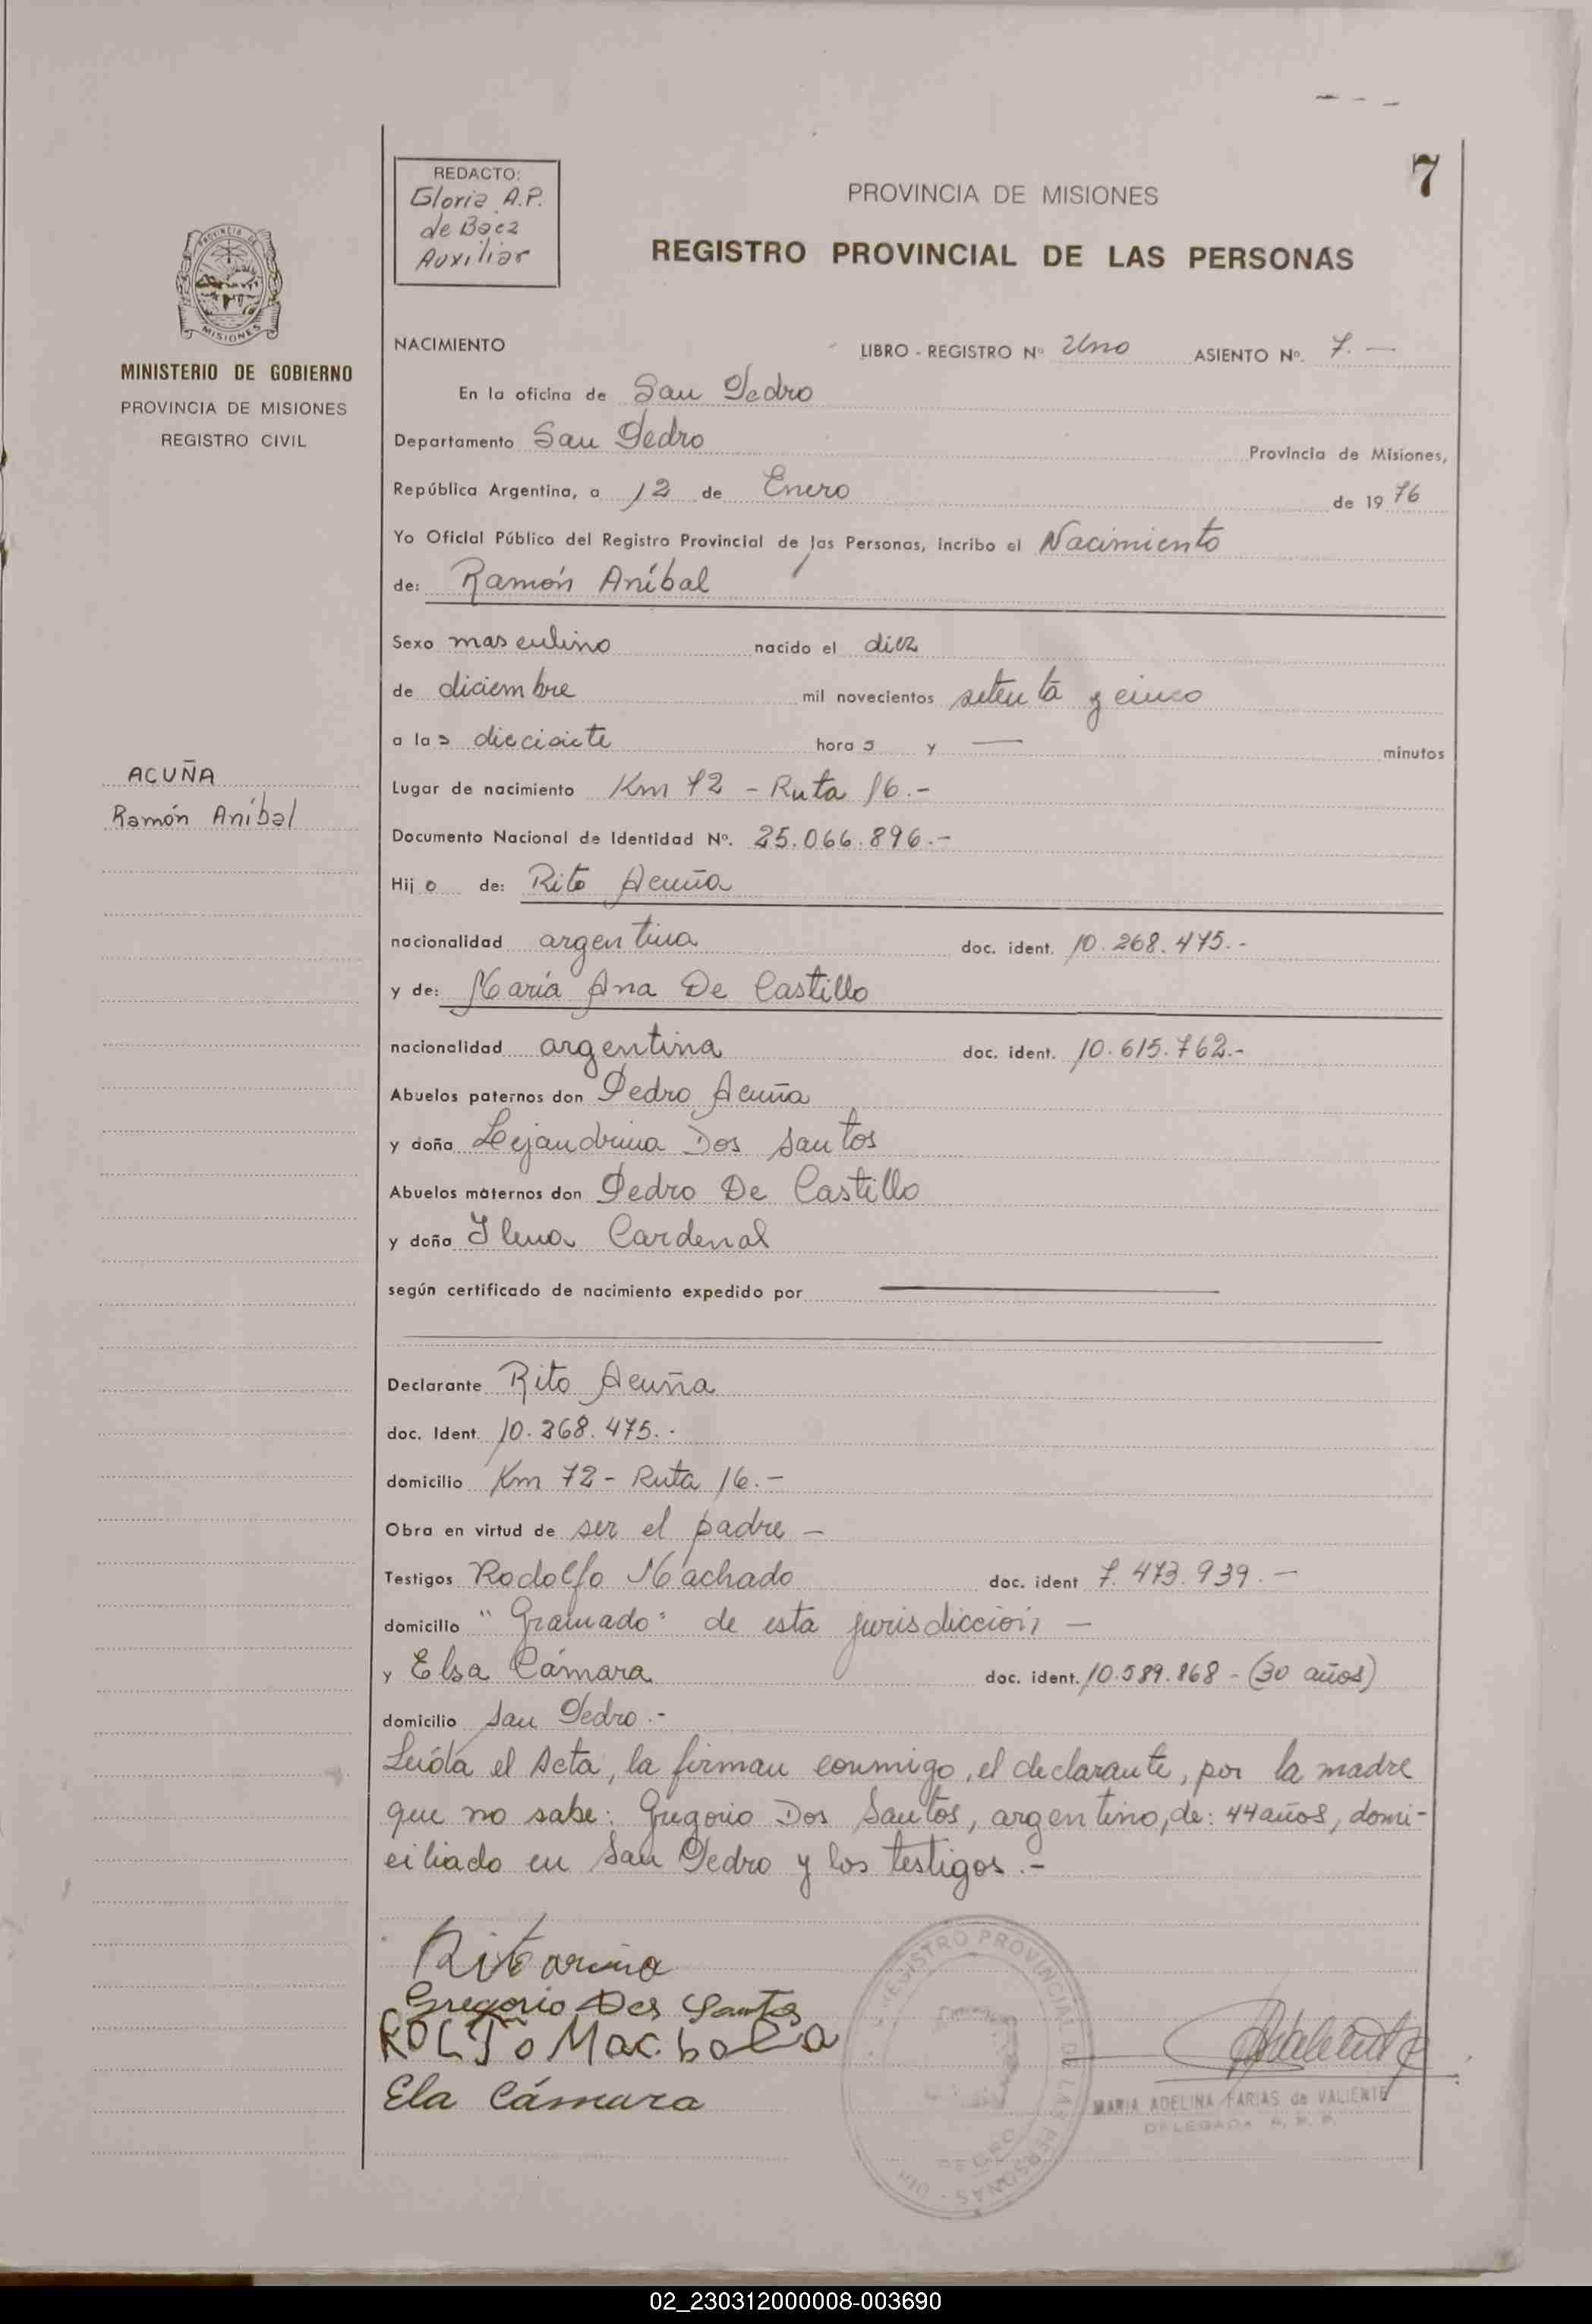 7
REDACTO:
Gloria A.P.
de Baez
Auxiliar
PROVINCIA DE MISIONES
REGISTRO PROVINCIAL DE LAS PERSONAS
PROVINCIA DE
MISIONES
MINISTERIO DE GOBIERNO
PROVINCIA DE MISIONES
REGISTRO CIVIL
ACUÑA
Ramón Aníbal
NACIMIENTO LIBRO - REGISTRO Nº Uno ASIENTO Nº. 7. —
En la oficina de San Pedro
Departamento San Pedro Provincia de Misiones,
República Argentina, a 12 de Enero de 19 76
Yo Oficial Público del Registro Provincial de las Personas, incribo el Nacimiento
de: Ramón Aníbal
Sexo masculino nacido el diez
de diciembre mil novecientos setenta y cinco
a las diecisiete horas y — minutos
Lugar de nacimiento Km 72 - Ruta 16.-
Documento Nacional de Identidad Nº. 25.066.896.-
Hijo de: Rito Acuña
nacionalidad argentina doc. ident. 10.268.475.-
y de: María Ana De Castillo
nacionalidad argentina doc. ident. 10.615.762.-
Abuelos paternos don Pedro Acuña
y doña Lejandrina Dos Santos
Abuelos maternos don Pedro De Castillo
y doña Ilena Cardenal
según certificado de nacimiento expedido por
Declarante Rito Acuña
doc. Ident. 10.268.475.-
domicilio Km 72 - Ruta 16.-
Obra en virtud de ser el padre —
Testigos Rodolfo Machado doc. ident 7.473.939.—
domicilio "Gramado" de esta jurisdicción —
y Elsa Cámara doc. ident. 10.589.868 - (30 años)
domicilio San Pedro.-
Leída el Acta, la firman conmigo, el declarante, por la madre
que no sabe: Gregorio Dos Santos, argentino, de: 44 años, domi-
ciliado en San Pedro y los testigos.-
Rito acuña
Gregorio Dos Santos
Ela Cámara
REGISTRO PROVINCIAL DE LAS PERSONAS
MARIA ADELINA FARIAS de VALIENTE
DELEGADA
02_230312000008-003690